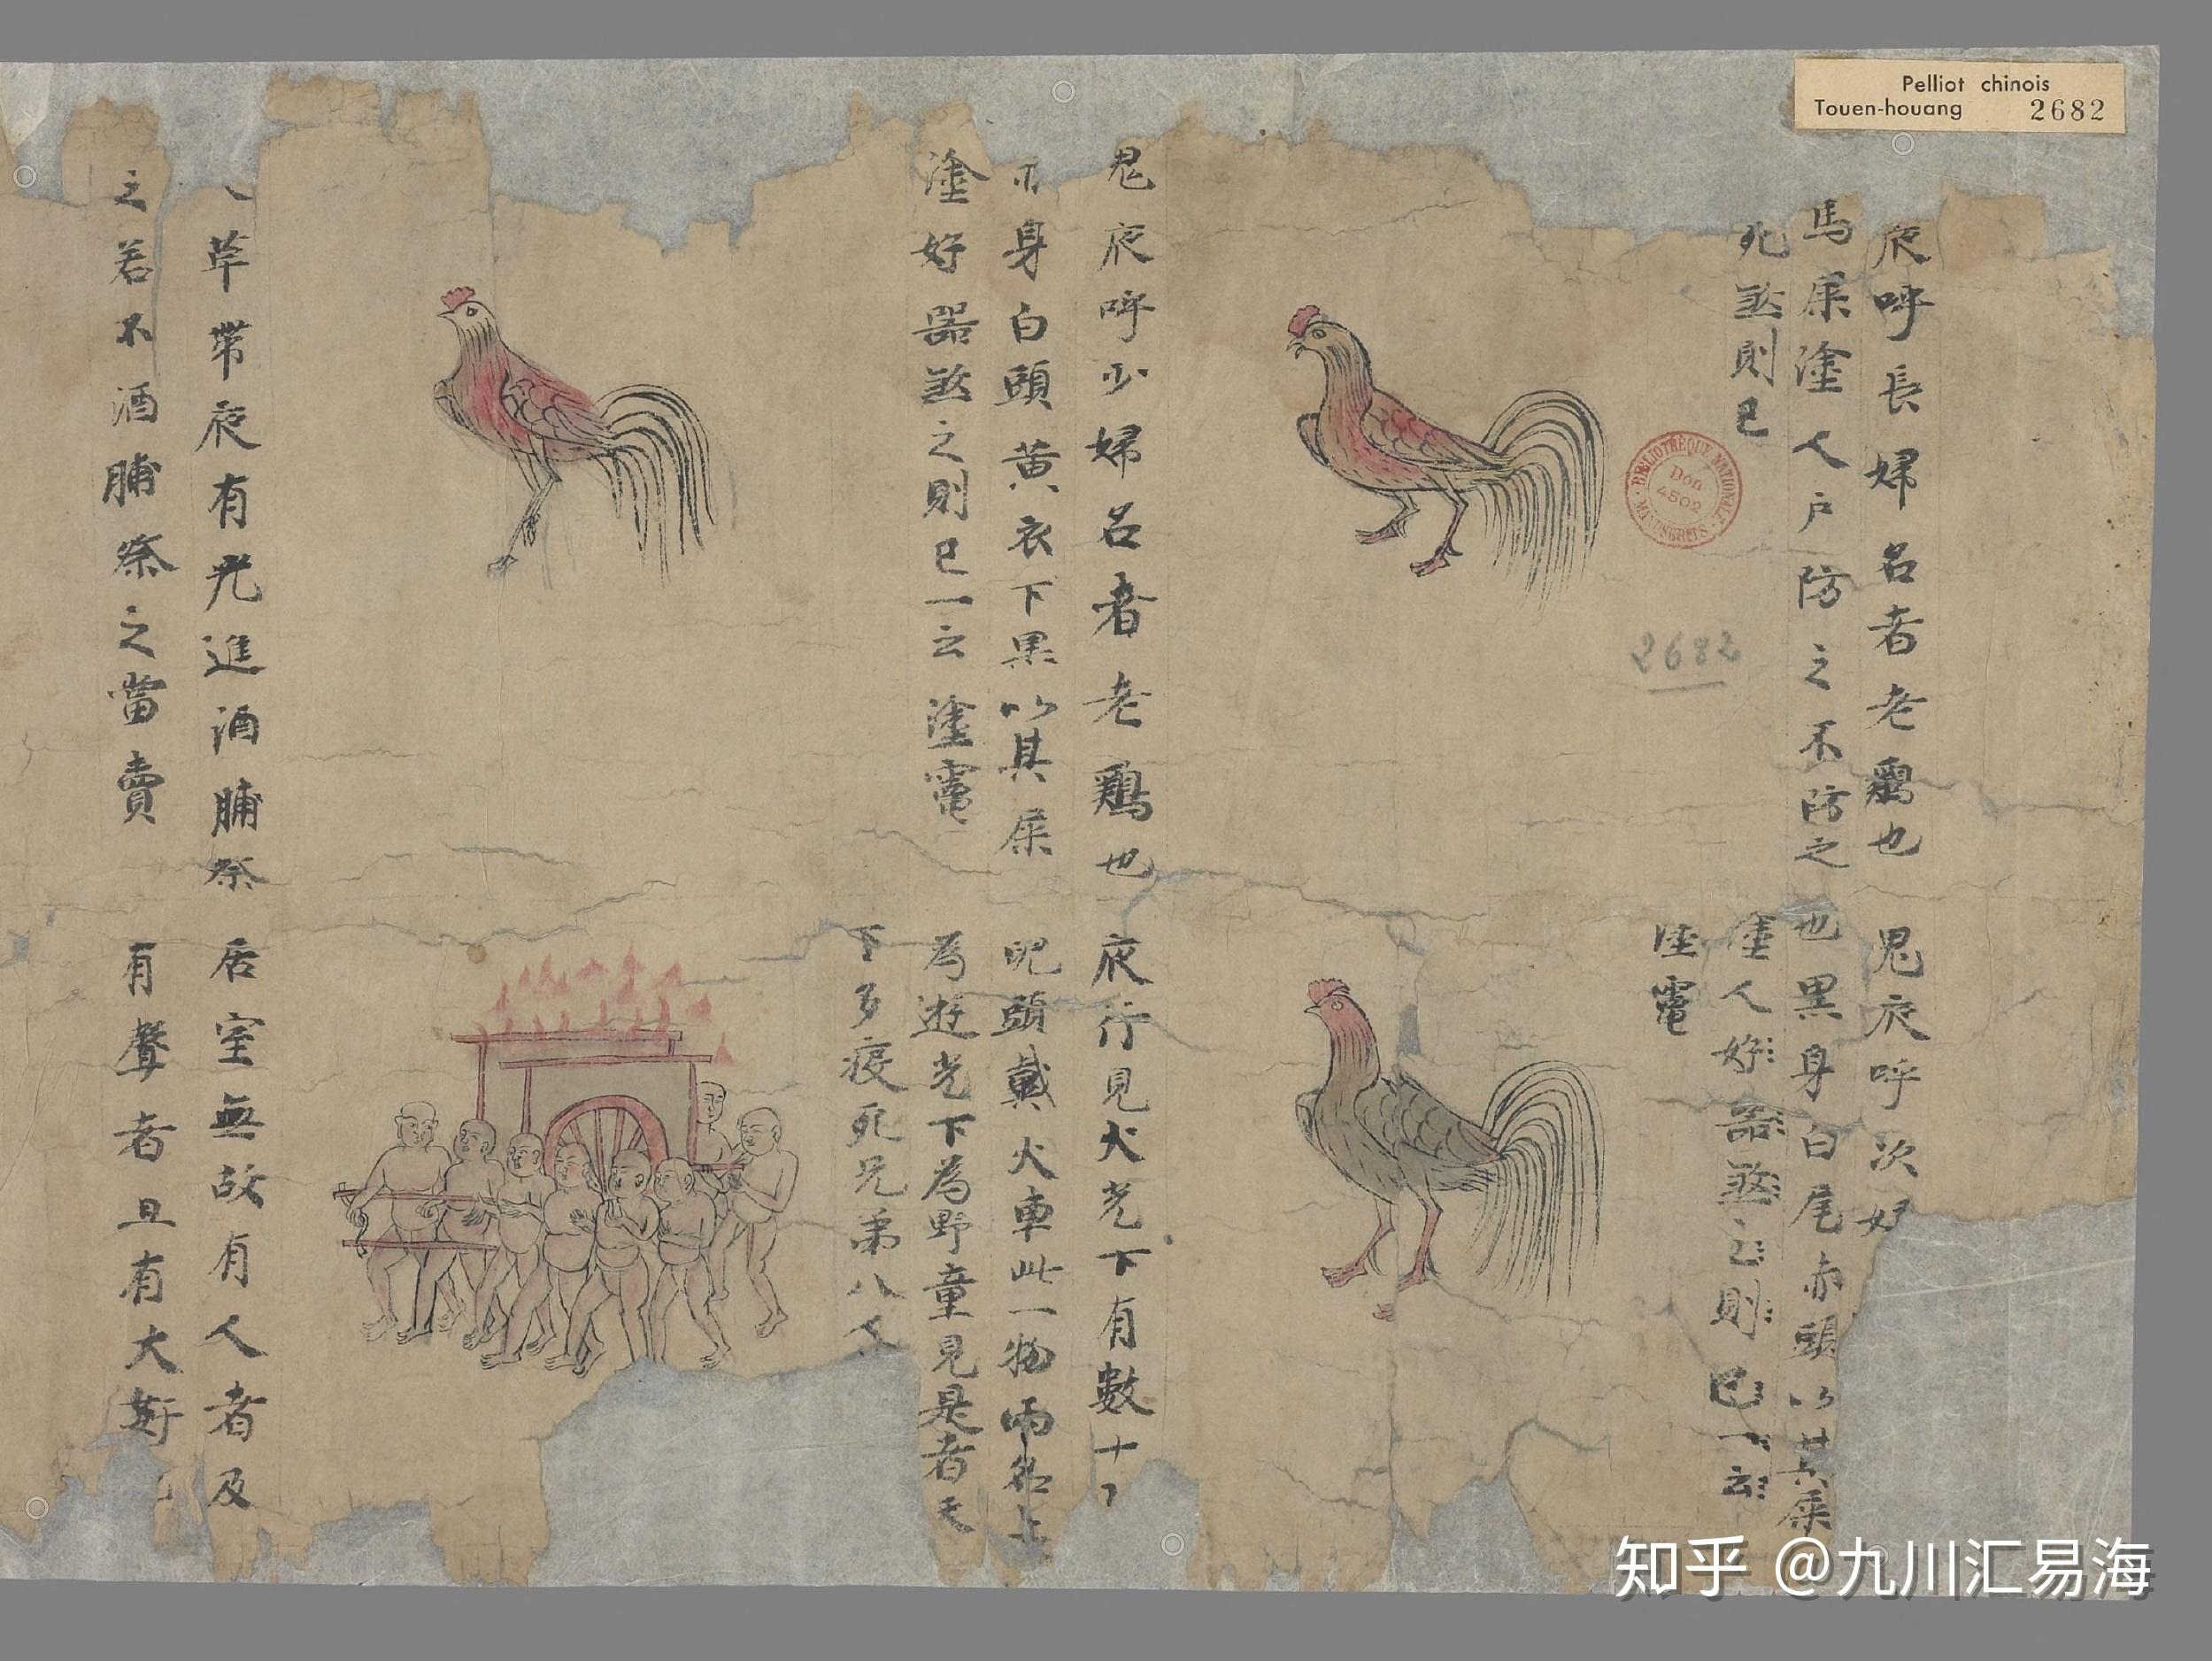 Pelliot chinois
Touen-houang 2682
夜呼長婦名者老鷄也
馬屎塗人户防之不防之
死煞則已
鬼夜呼次婦
也黑身白尾赤頭以其屎
塗人好器煞之則已一云
塗竈
BIBLIOTHÈQUE NATIONALE
MANUSCRITS
Don
4502
2682
鬼夜呼少婦名者老鷄也
身白頭黄衣下黑以其屎
塗好器煞之則已一云塗竈
夜行見火光下有數十
頭戴火車此一物兩名上
為遊光下為野童見是者天
下多疫死兄弟八人
草帶夜有光進酒脯祭
之若不酒脯祭之當賣
居室無故有人者及
有聲者且有大
知乎 @九川汇易海